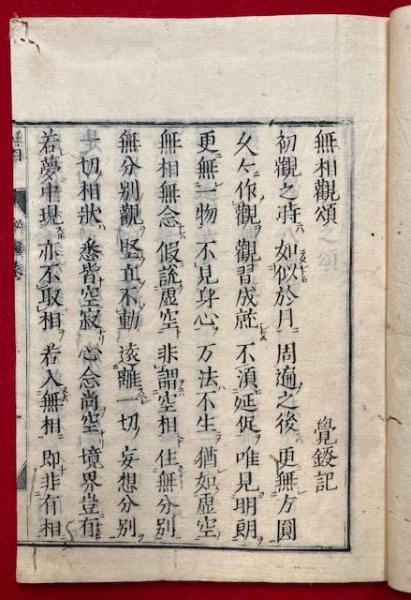 無相觀頌 覺鑁記
初觀之時 如似於月 周遍之後 更無方圓
久久作觀 觀習成就 不須延促 唯見明朗
更無一物 不見身心 万法不生 猶如虛空
無相無念 假說虛空 非謂空相 住無分別
無分別觀 堅直不動 遠離一切 妄想分別
一切相狀 悉皆空寂 心念尚空 境界豈有
若夢中現 亦不取相 若入無相 即非有相